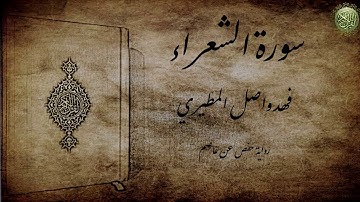 سورة الشعراء
فهد واصل المطيري
رواية حفص عن عاصم